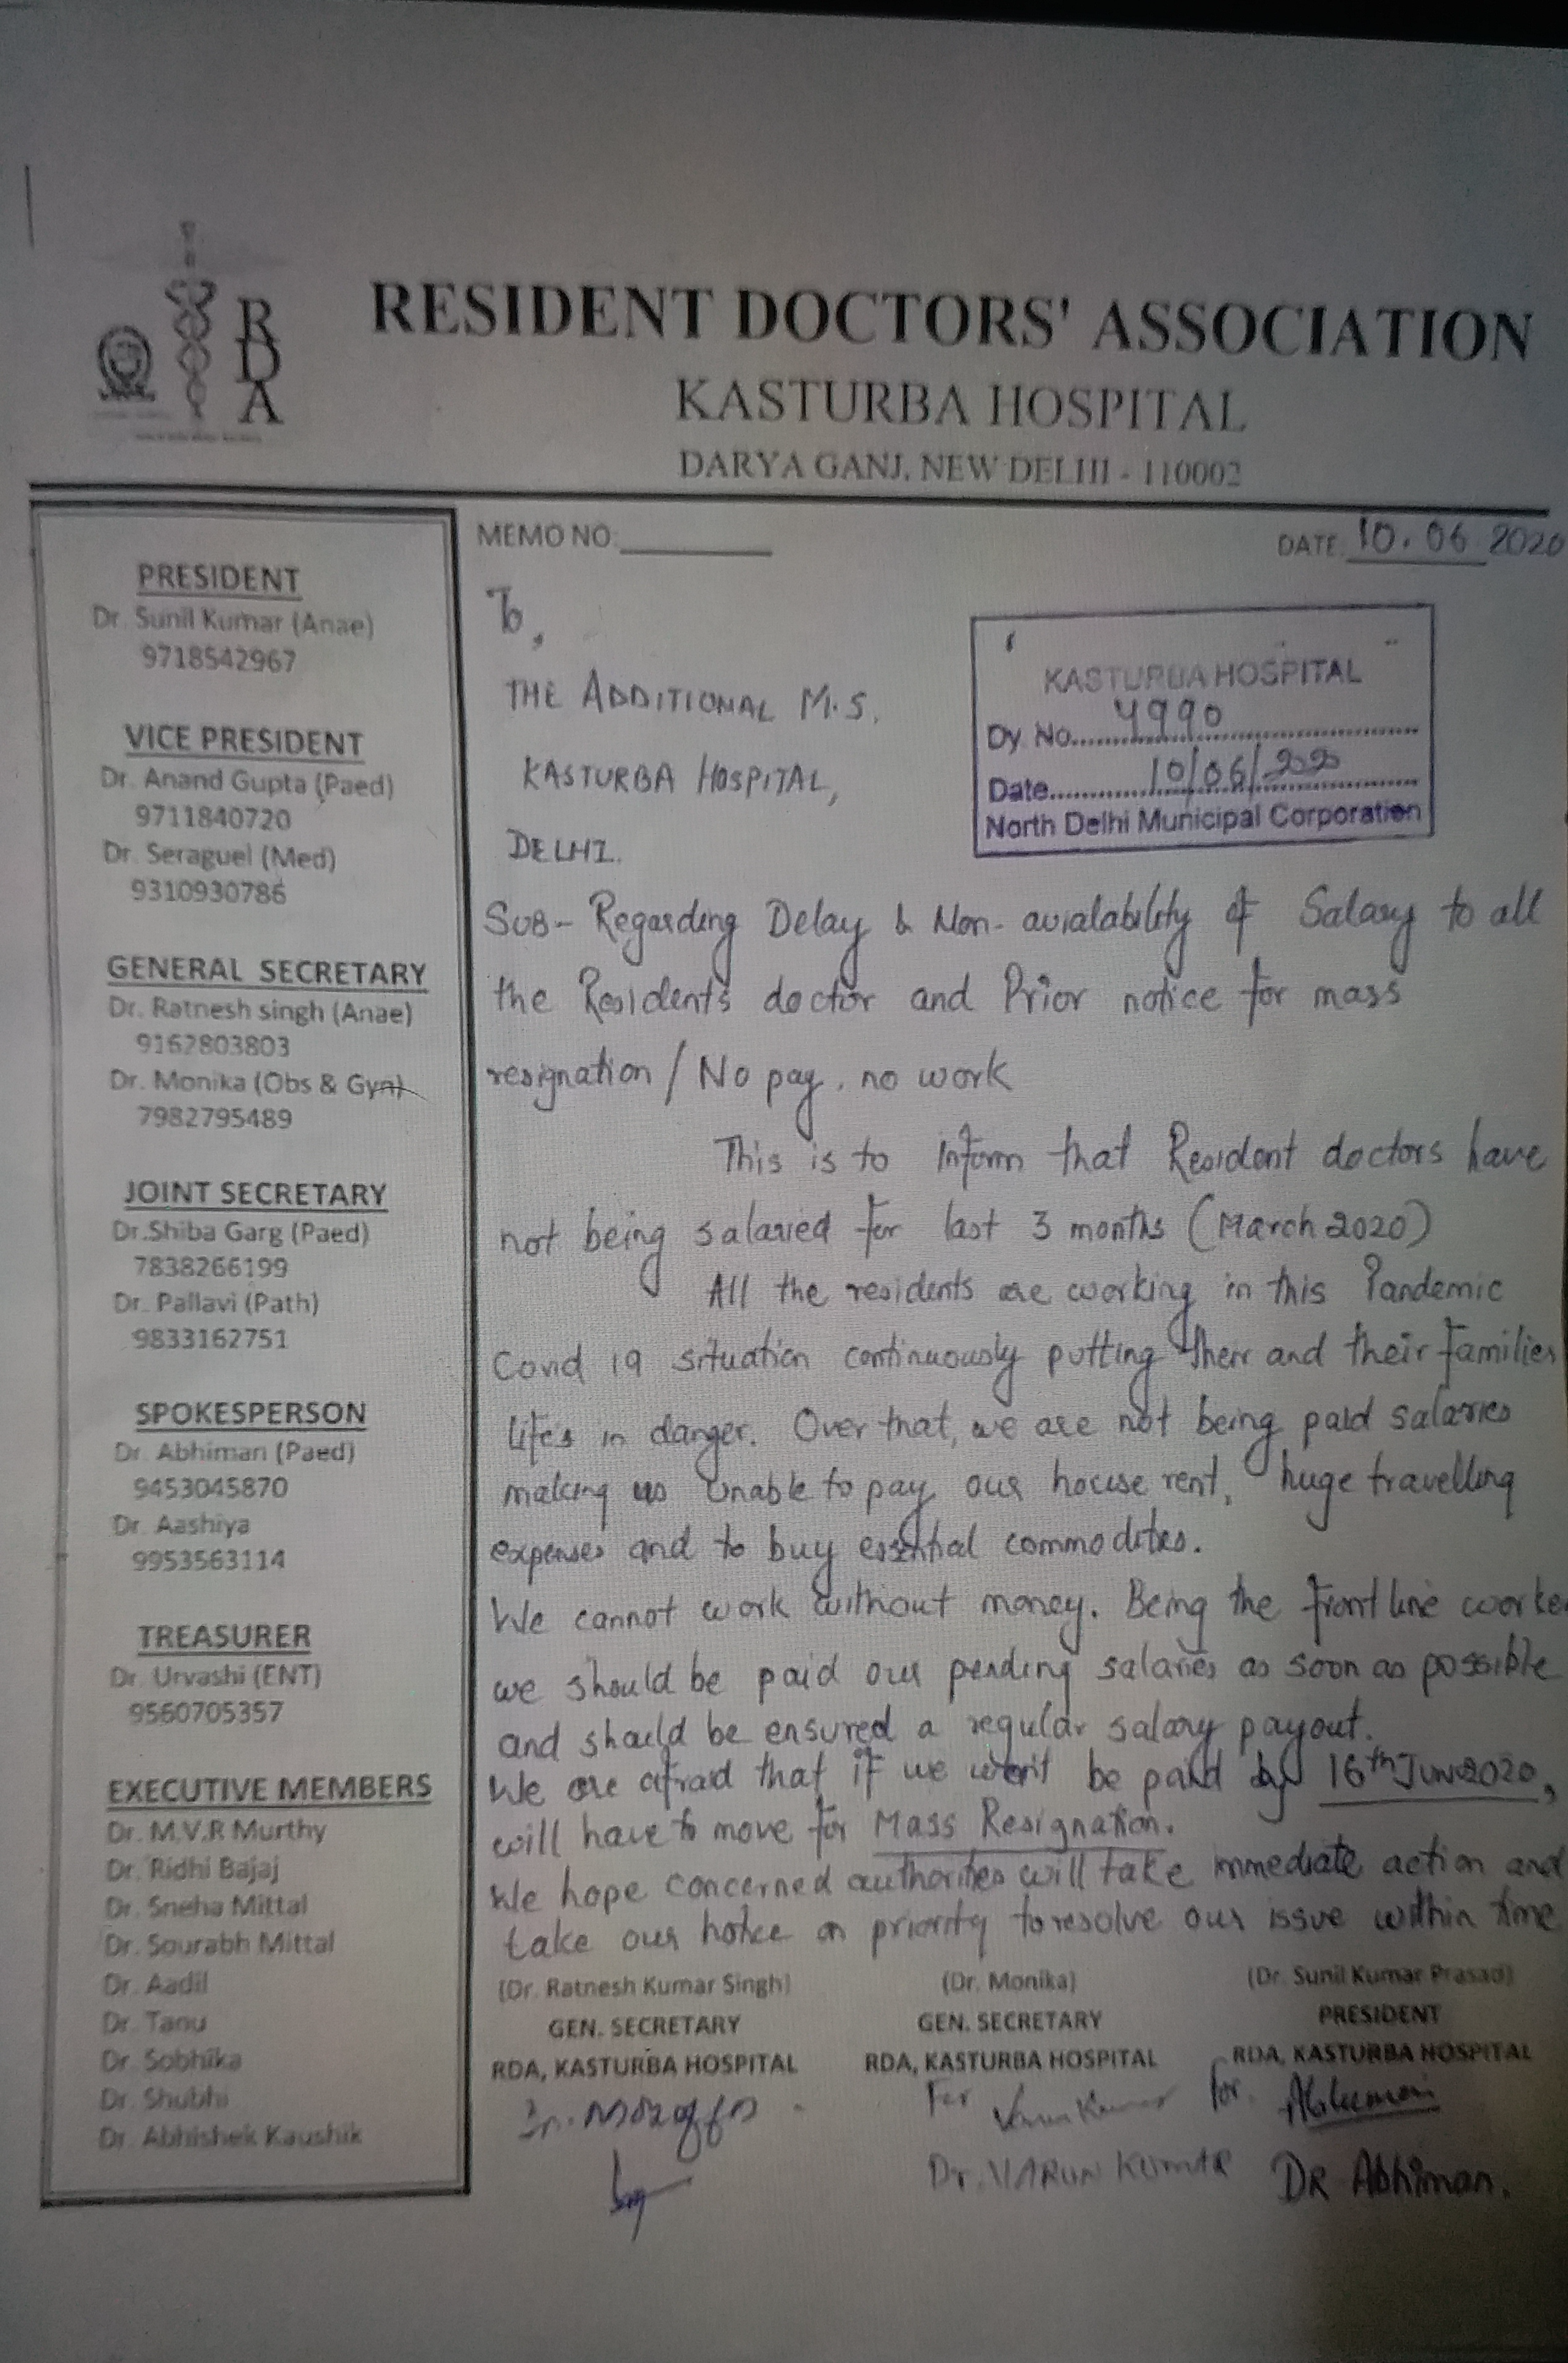 RDA
RESIDENT DOCTORS' ASSOCIATION
KASTURBA HOSPITAL
DARYA GANJ, NEW DELHI - 110002
PRESIDENT
Dr. Sunil Kumar (Anae)
9718542967
VICE PRESIDENT
Dr. Anand Gupta (Paed)
9711840720
Dr. Seraguel (Med)
9310930786
GENERAL SECRETARY
Dr. Ratnesh singh (Anae)
9162803803
Dr. Monika (Obs & Gyn)
7982795489
JOINT SECRETARY
Dr.Shiba Garg (Paed)
7838266199
Dr. Pallavi (Path)
9833162751
SPOKESPERSON
Dr. Abhiman (Paed)
9453045870
Dr. Aashiya
9953563114
TREASURER
Dr. Urvashi (ENT)
9560705357
EXECUTIVE MEMBERS
Dr. M.V.R Murthy
Dr. Ridhi Bajaj
Dr. Sneha Mittal
Dr. Sourabh Mittal
Dr. Aadil
Dr. Tanu
Dr. Sobhika
Dr. Shubhi
Dr. Abhishek Kaushik
MEMO NO:
DATE: 10.06 2020
To,
THE ADDITIONAL M.S.
KASTURBA HOSPITAL,
DELHI.
KASTURBA HOSPITAL
Dy. No. 4990
Date 10/06/2020
North Delhi Municipal Corporation
SUB- Regarding Delay & Non-avialability of Salary to all
the Residents doctor and Prior notice for mass
resignation / No pay, no work
This is to inform that Resident doctors have
not being salaried for last 3 months (March 2020)
All the residents are working in this Pandemic
Covid 19 situation continuously putting their and their families
life's in danger. Over that, we are not being paid salaries
making us unable to pay our house rent, huge travelling
expenses and to buy essential commodities.
We cannot work without money. Being the front line worke
we should be paid our pending salaries as soon as possible
and should be ensured a regular salary payout.
We are afraid that if we won't be paid by 16th Jun 2020,
will have to move for Mass Resignation.
We hope concerned authorities will take immediate action and
take our notice on priority to resolve our issue within time
(Dr. Ratnesh Kumar Singh) (Dr. Monika) (Dr. Sunil Kumar Prasad)
GEN. SECRETARY GEN. SECRETARY PRESIDENT
RDA, KASTURBA HOSPITAL RDA, KASTURBA HOSPITAL RDA, KASTURBA HOSPITAL
For Varun Kumar for Abhiman
Dr. VARUN KUMAR DR Abhiman.